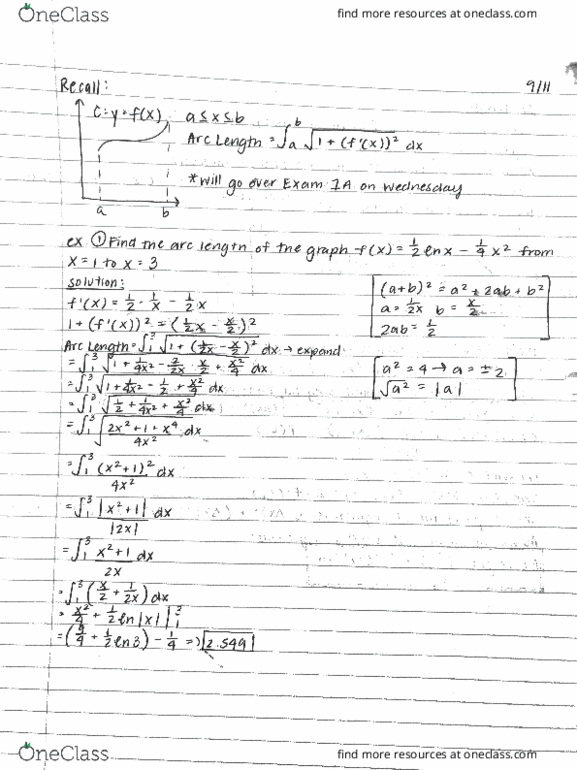 OneClass
find more resources at oneclass.com
Recall:
9/11
C: y = f(x) a ≤ x ≤ b
Arc Length = ∫_a^b √(1 + (f'(x))²) dx
*Will go over Exam 1A on Wednesday
a b
ex ① Find the arc length of the graph f(x) = 1/2 ln x − 1/4 x² from
x = 1 to x = 3
solution:
f'(x) = 1/2 · 1/x − 1/2 x
1 + (f'(x))² = (1/2x − x/2)²
Arc Length = ∫_1^3 √(1 + (1/2x − x/2)²) dx → expand
= ∫_1^3 √(1 + 1/4x² − 2/2x · x/2 + x²/4) dx
= ∫_1^3 √(1 + 1/4x² − 1/2 + x²/4) dx
= ∫_1^3 √(1/2 + 1/4x² + x²/4) dx
= ∫_1^3 √((2x² + 1 + x⁴)/4x²) dx
= ∫_1^3 (x² + 1)²/4x² dx
= ∫_1^3 |x² + 1|/|2x| dx
= ∫_1^3 (x² + 1)/2x dx
= ∫_1^3 (x/2 + 1/2x) dx
= x²/4 + 1/2 ln|x| |_1^3
= (9/4 + 1/2 ln 3) − 1/4 => 2.549
(a+b)² = a² + 2ab + b²
a = 1/2x b = x/2
2ab = 1/2
a² = 4 → a = ± 2
√a² = |a|
OneClass
find more resources at oneclass.com